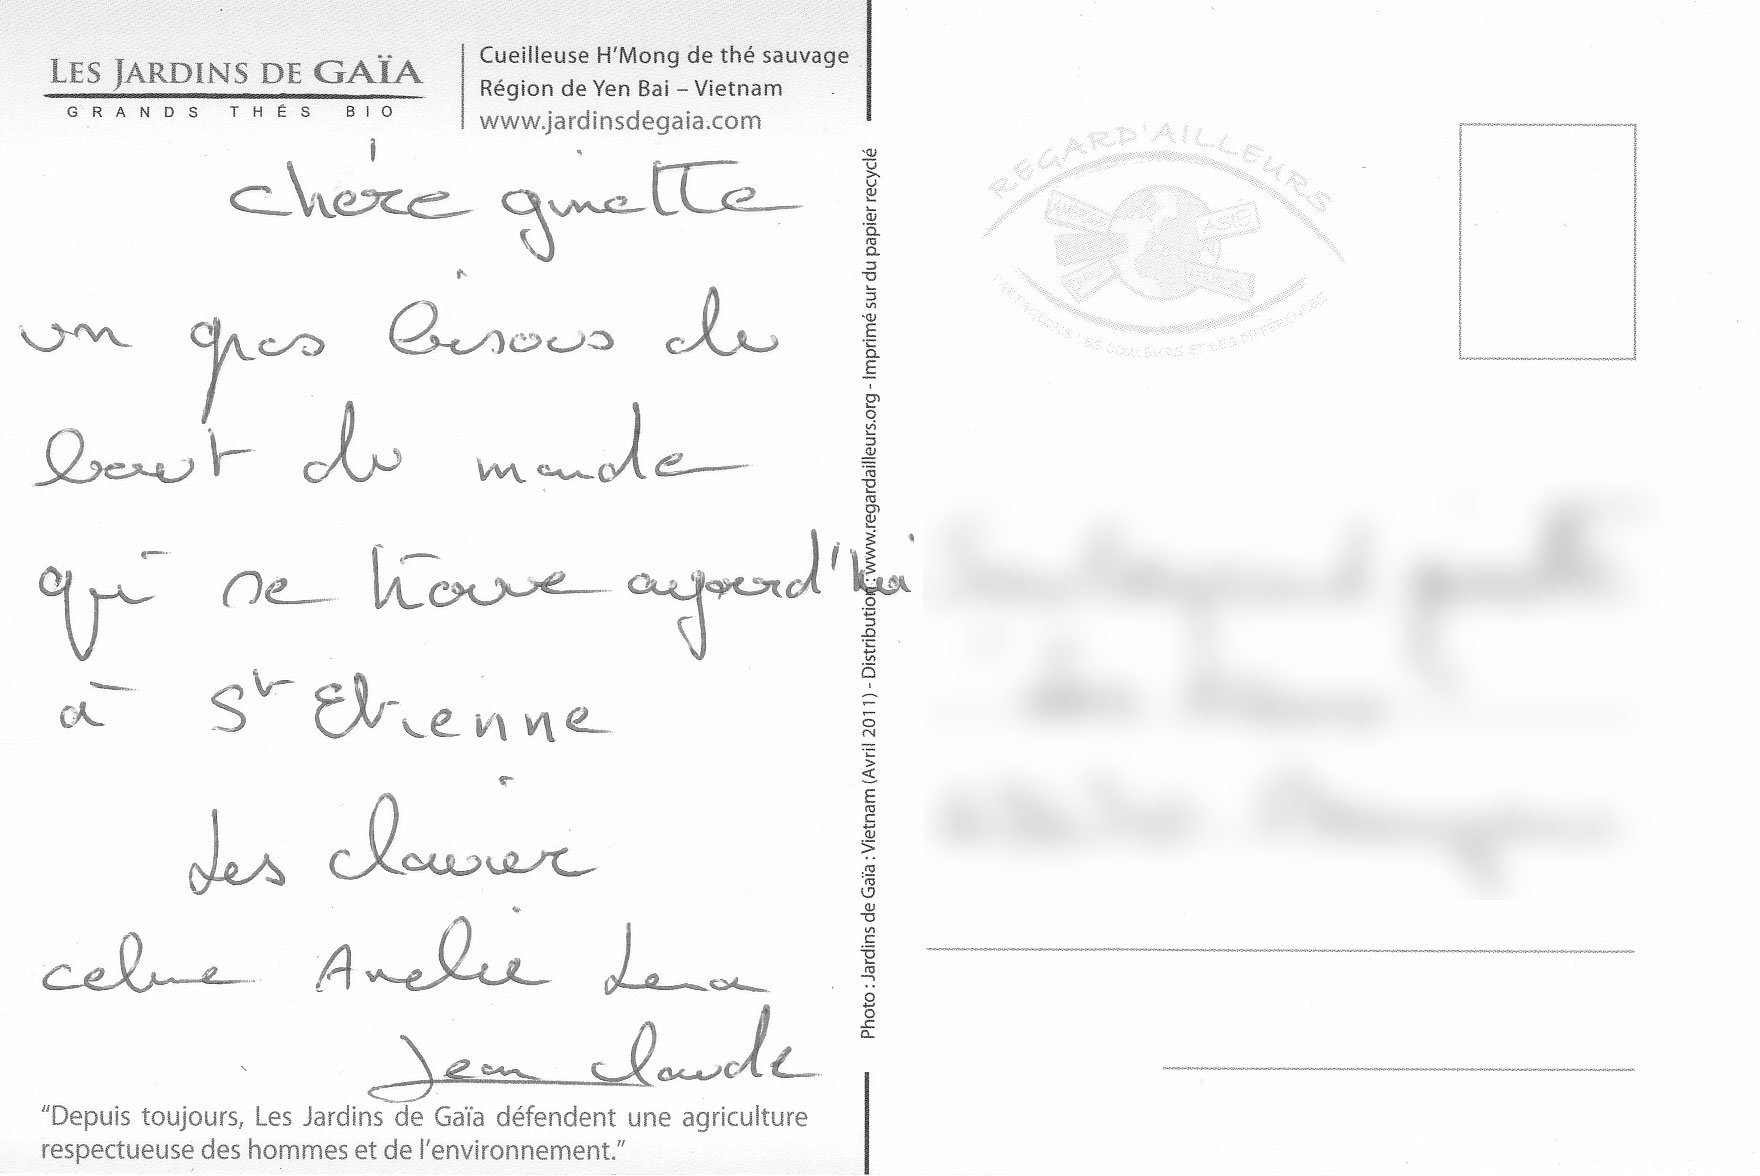 LES JARDINS DE GAÏA
GRANDS THÉS BIO
Cueilleuse H'Mong de thé sauvage
Région de Yen Bai – Vietnam
www.jardinsdegaia.com
chére ginette
un gros bisous du
bout du monde
qui se trouve aujourd'hui
à St Etienne
Les clavier
celine Amelie Lena
Jean claude
"Depuis toujours, Les Jardins de Gaïa défendent une agriculture
respectueuse des hommes et de l'environnement."
Photo : Jardins de Gaïa : Vietnam (Avril 2011) - Distribution : www.regardailleurs.org - Imprimé sur du papier recyclé
REGARD'AILLEURS
ASIE